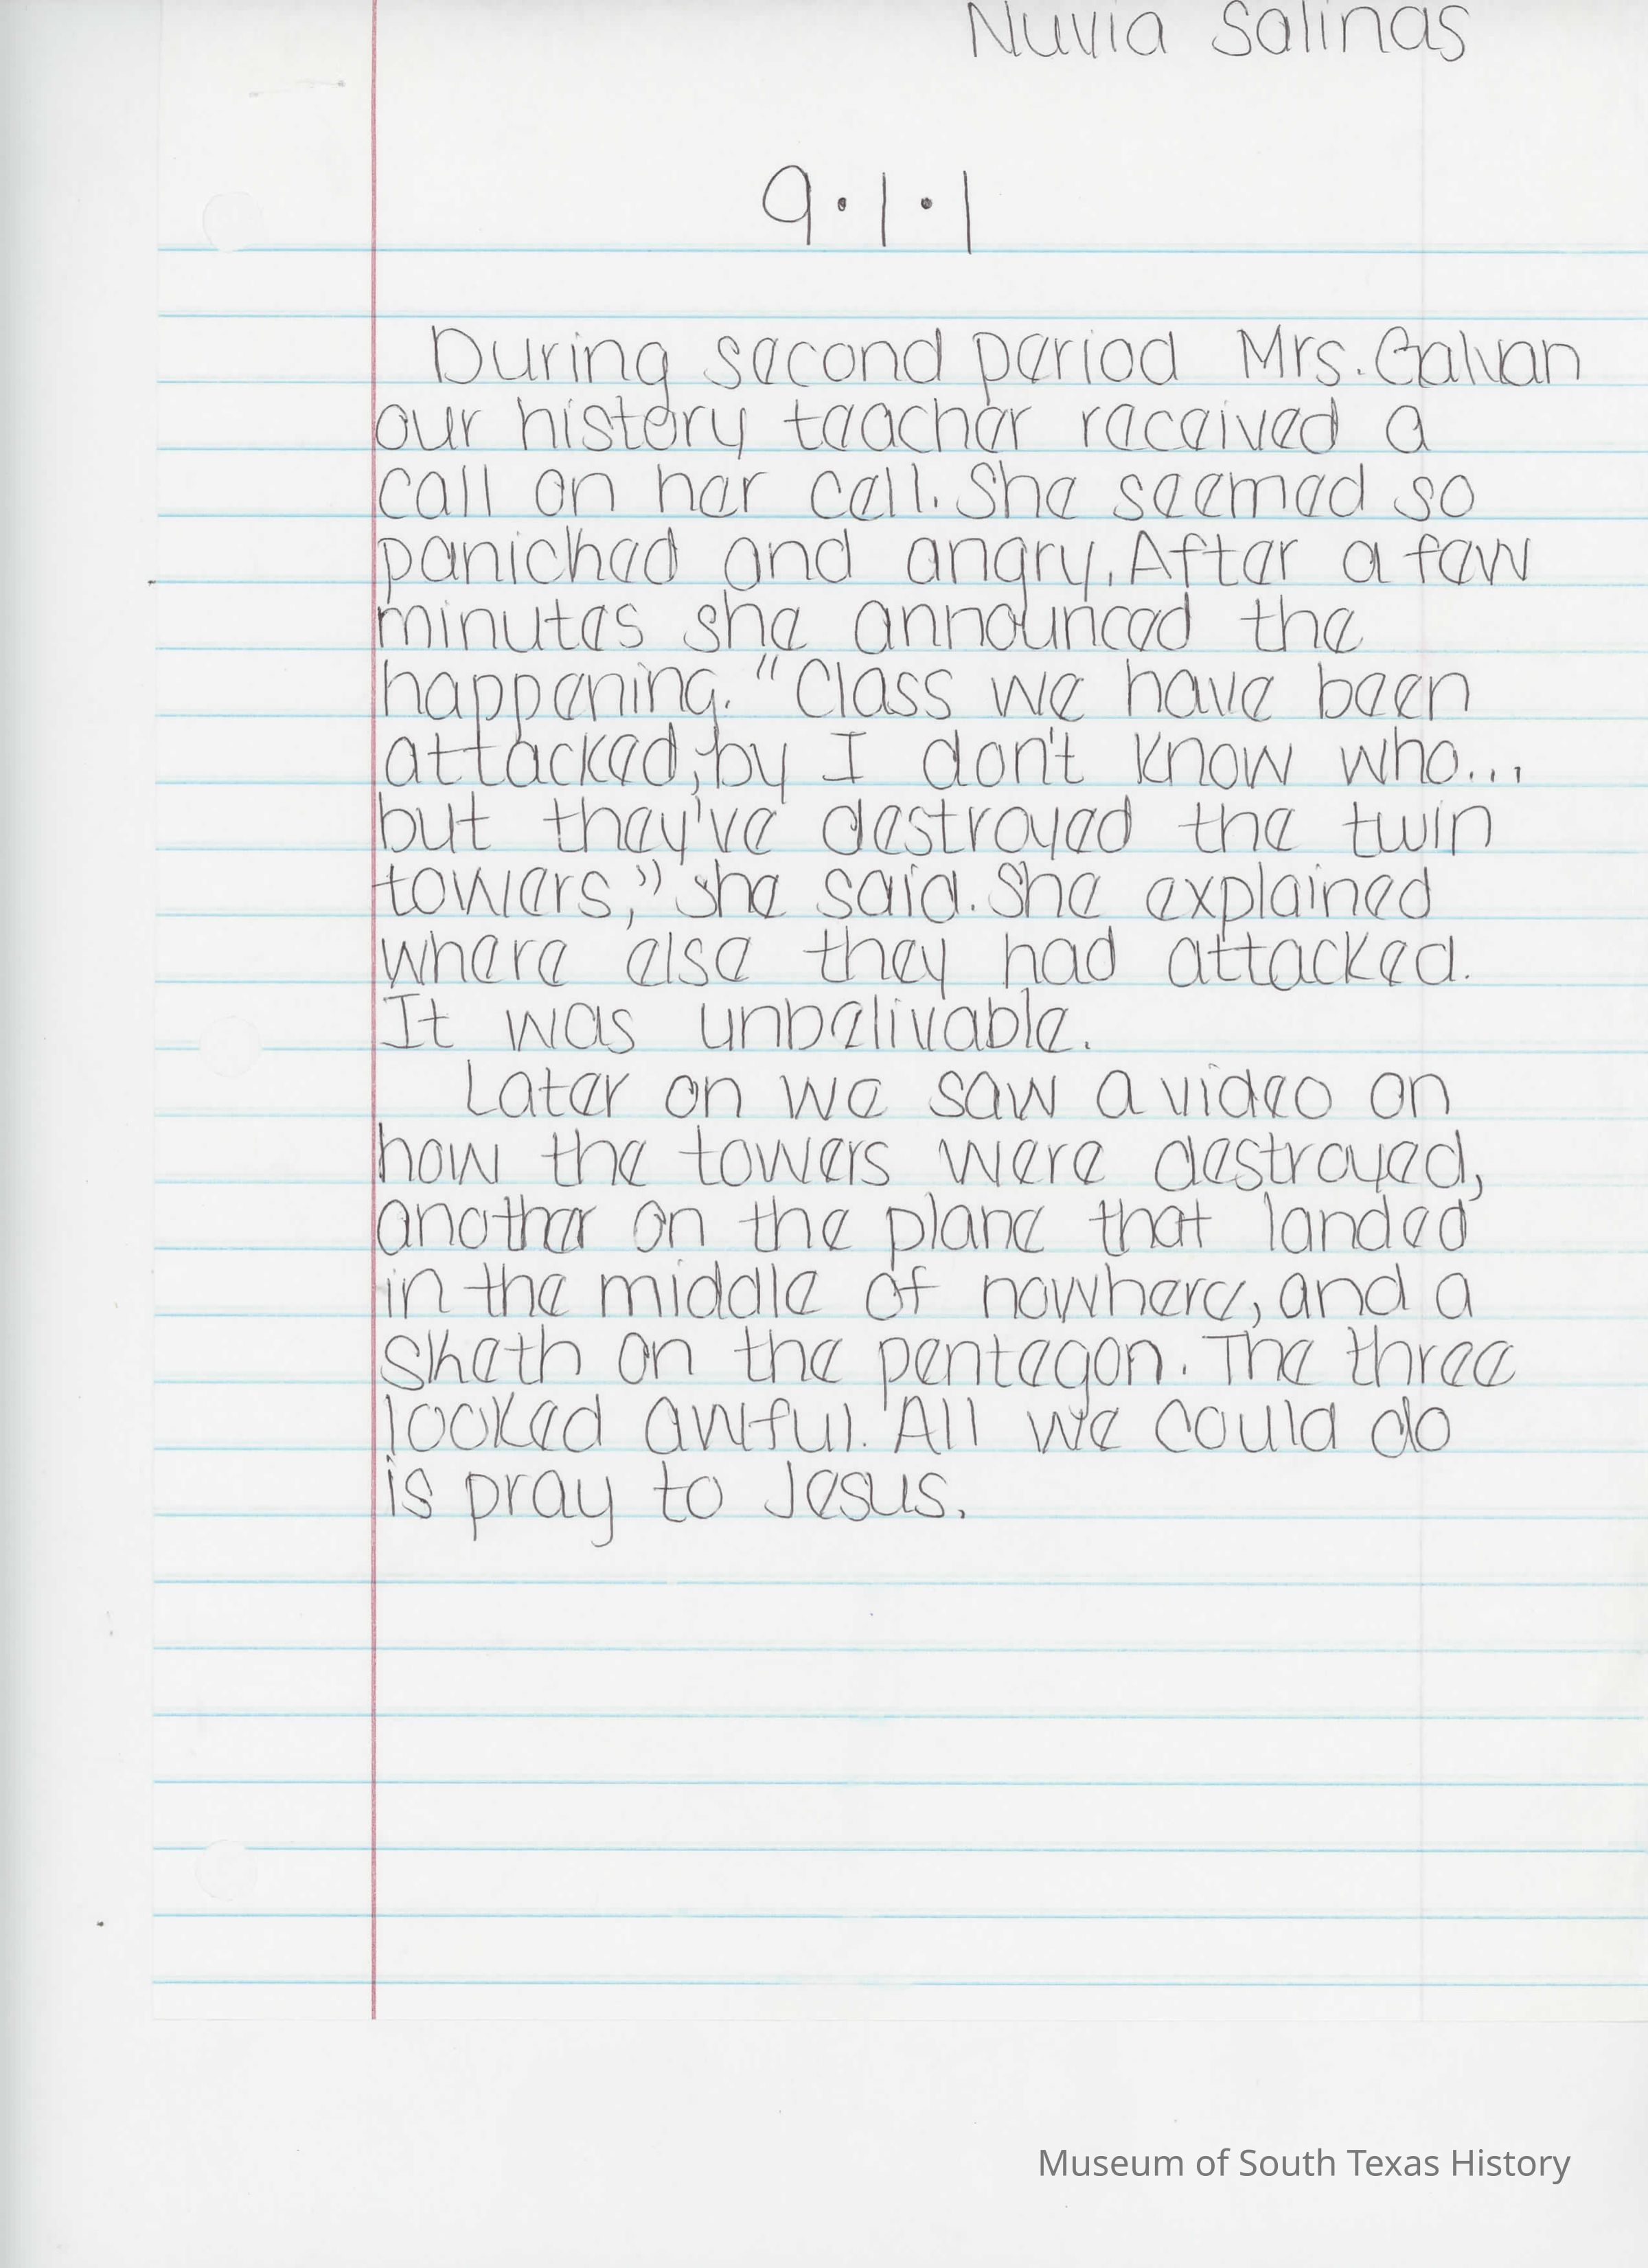 Nuvia Salinas
9•1•1
During second period Mrs. Galvan
our history teacher received a
call on her cell. She seemed so
panicked and angry. After a few
minutes she announced the
happening. "Class we have been
attacked, by I don't know who...
but they've destroyed the twin
towers," she said. She explained
where else they had attacked.
It was unbelivable.
Later on we saw a video on
how the towers were destroyed,
another on the plane that landed
in the middle of nowhere, and a
sketh on the pentegon. The three
looked awful. All we could do
is pray to Jesus.
Museum of South Texas History